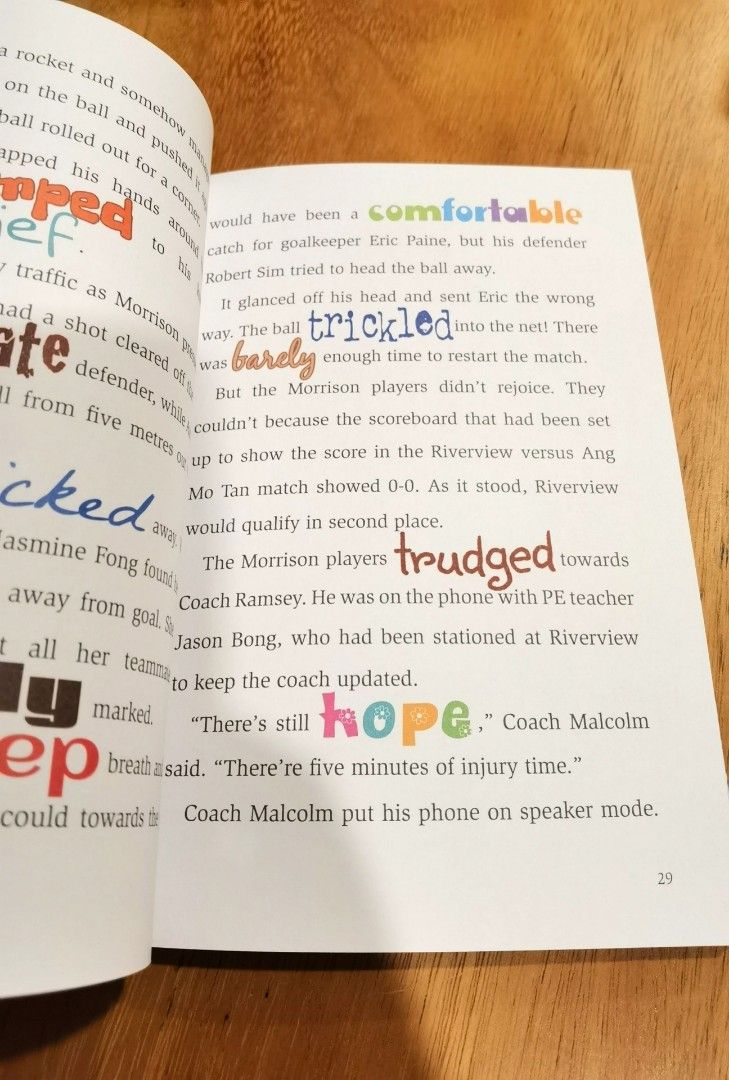 a rocket and somehow
on the ball and pushed
ball rolled out for a corner.
his hands around
to his
traffic as Morrison
had a shot cleared off
defender, while
from five metres
away.
Jasmine Fong found
away from goal.
all her
marked.
breath
could towards the
would have been a comfortable
catch for goalkeeper Eric Paine, but his defender
Robert Sim tried to head the ball away.
It glanced off his head and sent Eric the wrong
way. The ball trickled into the net! There
was barely enough time to restart the match.
But the Morrison players didn't rejoice. They
couldn't because the scoreboard that had been set
up to show the score in the Riverview versus Ang
Mo Tan match showed 0-0. As it stood, Riverview
would qualify in second place.
The Morrison players trudged towards
Coach Ramsey. He was on the phone with PE teacher
Jason Bong, who had been stationed at Riverview
to keep the coach updated.
"There's still hope," Coach Malcolm
said. "There're five minutes of injury time."
Coach Malcolm put his phone on speaker mode.
29